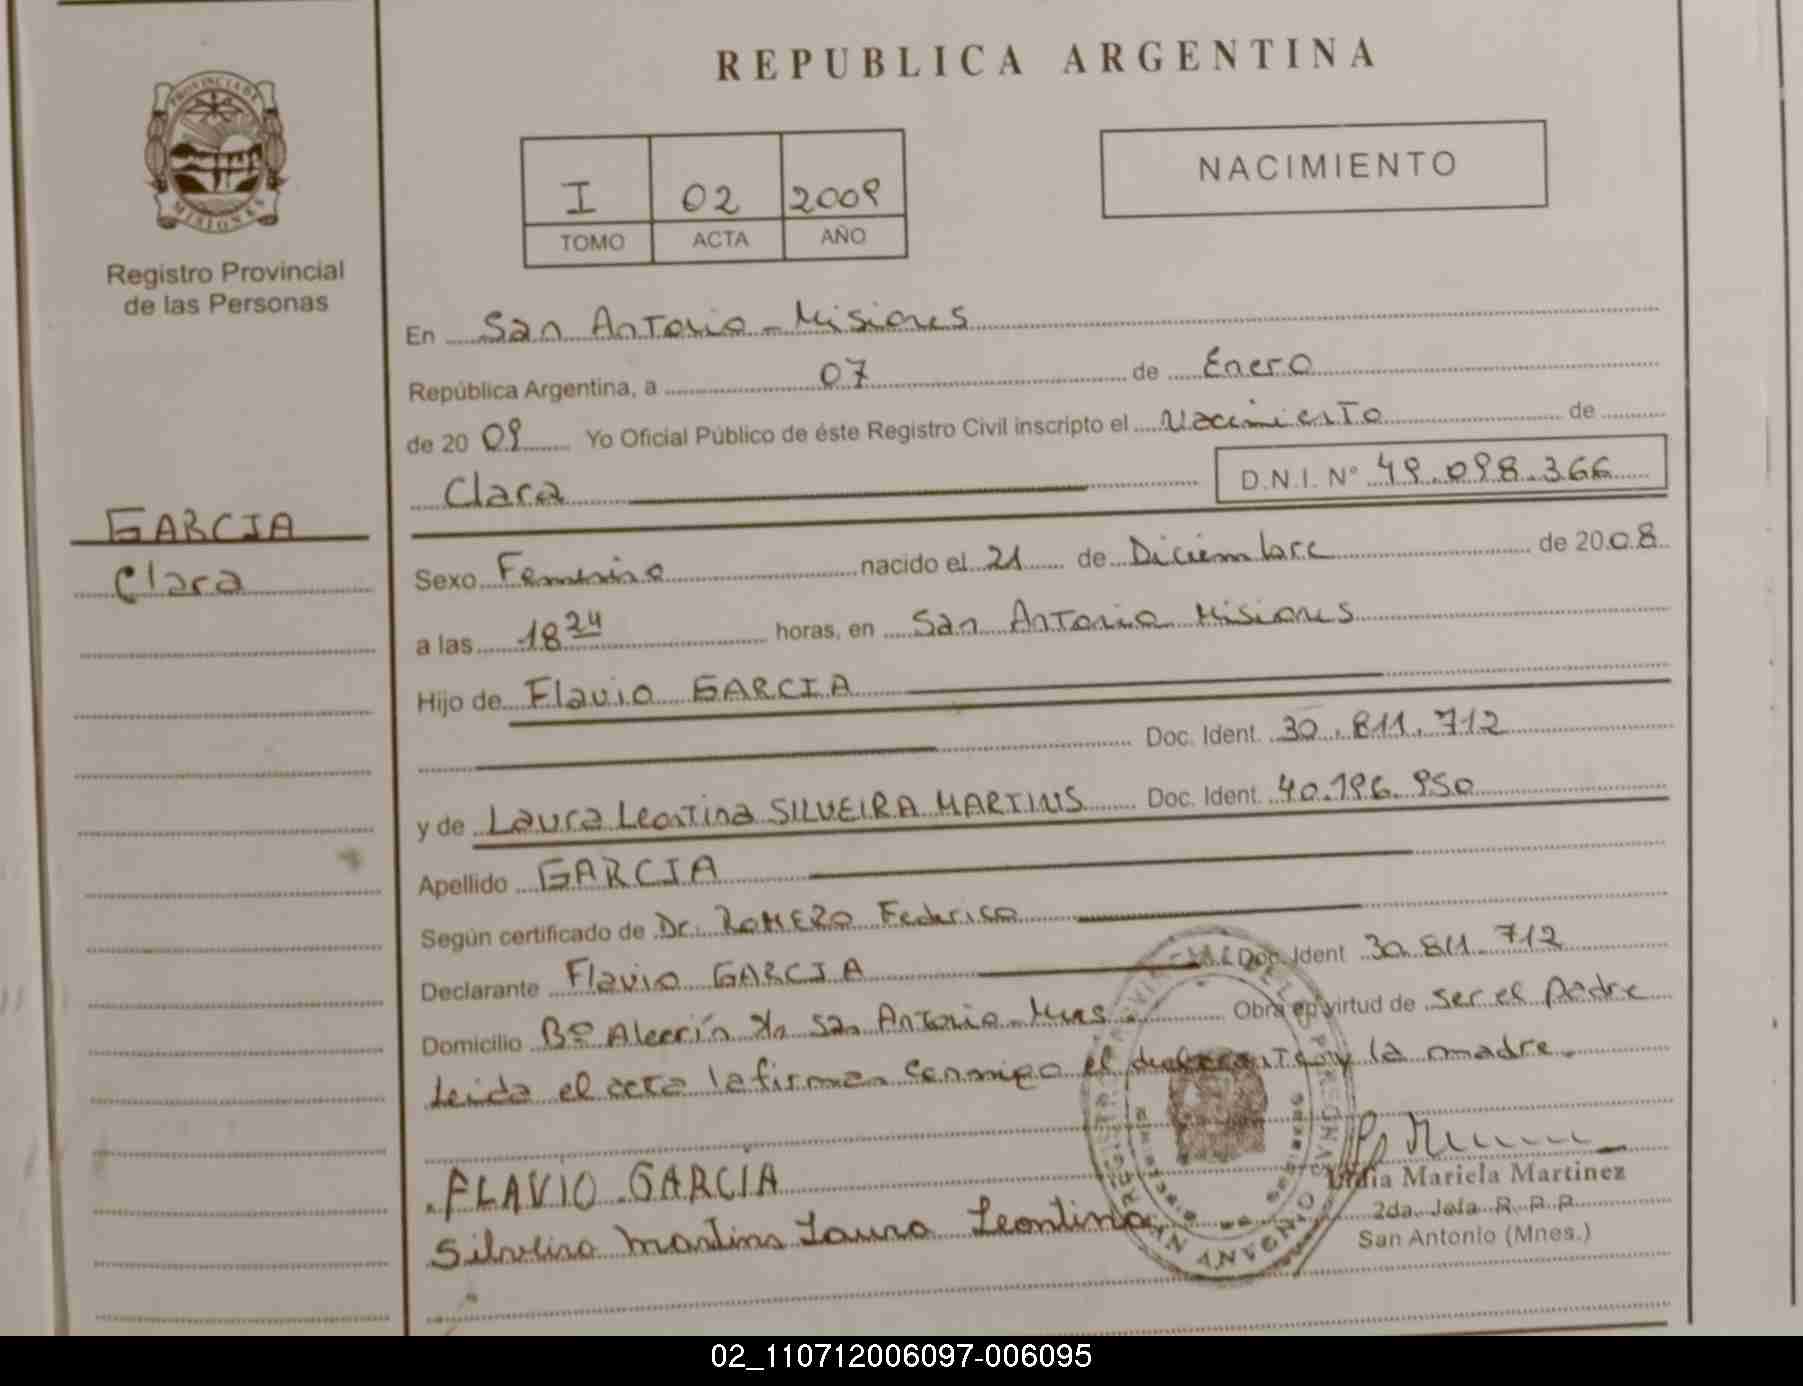 REPUBLICA ARGENTINA
PROVINCIA DE
MISIONES
Registro Provincial
de las Personas
I 02 2009
TOMO ACTA AÑO
NACIMIENTO
GARCIA
Clara
En San Antonio - Misiones
República Argentina, a 07 de Enero
de 2009 Yo Oficial Público de éste Registro Civil inscripto el Nacimiento de
Clara D.N.I. N° 49.098.366
Sexo Femenino nacido el 21 de Diciembre de 2008
a las 18 24 horas, en San Antonio Misiones
Hijo de Flavio GARCIA
Doc. Ident. 30.811.712
y de Laura Leontina SILVEIRA MARTINS Doc. Ident. 40.196.950
Apellido GARCIA
Según certificado de Dr. ROMERO Federico
Declarante Flavio GARCIA Doc. Ident 30.811.712
Domicilio Bº Alecrín San Antonio - Mnes. Obra en virtud de ser el padre
Leida el acta la firman conmigo el declarante y la madre.
FLAVIO GARCIA
Silveira Martins Laura Leontina
Lidia Mariela Martinez
2da. Jefa R. P. P.
San Antonio (Mnes.)
SAN ANTONIO
02_110712006097-006095